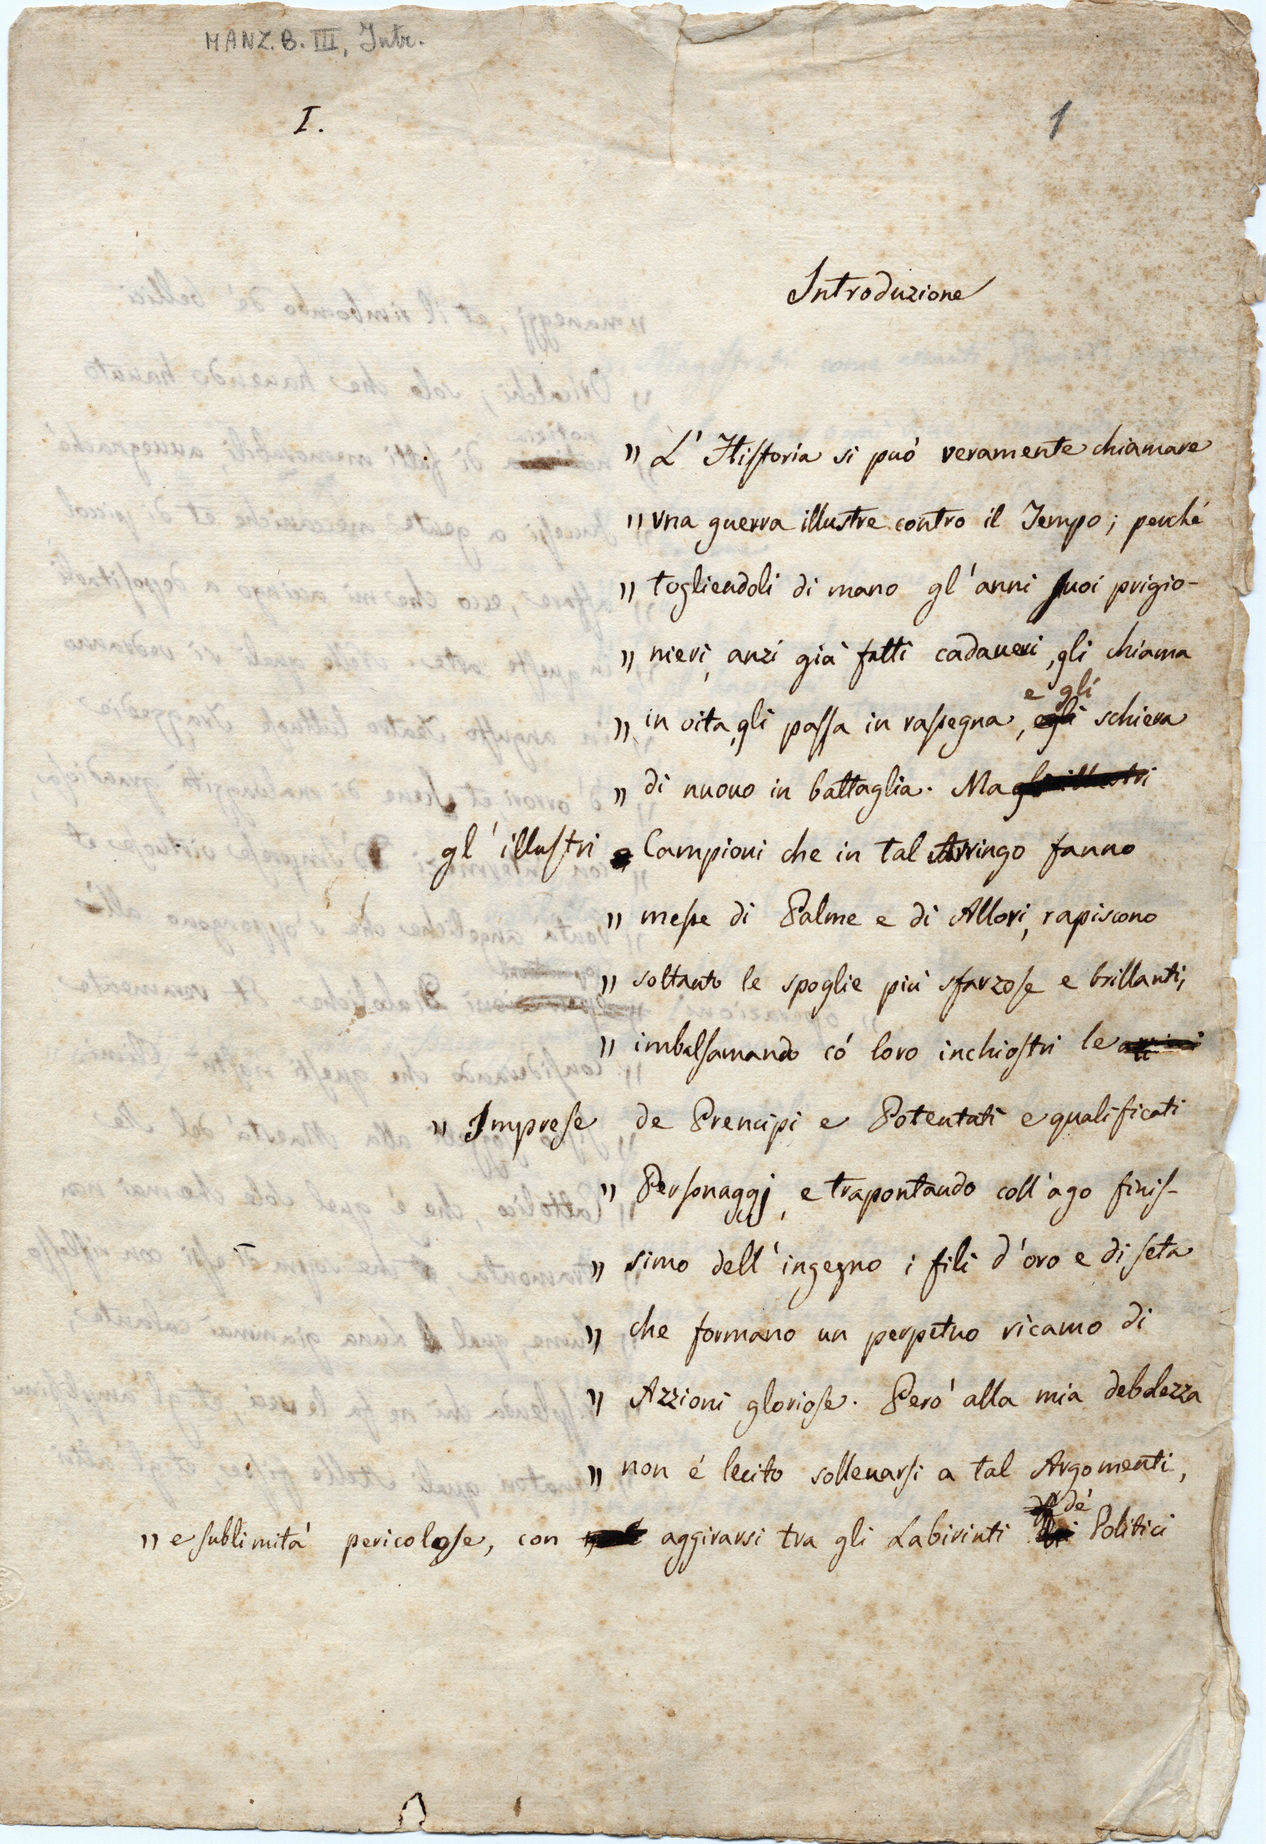 MANZ. B. III, Intr.
I.
1
Introduzione
" L' Historia si può veramente chiamare
" vna guerra illustre contro il Tempo; perché
" togliendoli di mano gl'anni suoi prigio-
" nieri, anzi già fatti cadaueri, gli chiama
e gli
" in vita, gli passa in rassegna, egli schiera
" di nuovo in battaglia. Ma gl'illustri
gl'illustri Campioni che in tal Arringo fanno
" messe di Palme e di Allori, rapiscono
" soltanto le spoglie più sfarzose e brillanti,
" imbalsamando có loro inchiostri le
" Imprese de Prencipi e Potentati e qualificati
" Personaggj, e trapontando coll'ago finis-
" simo dell'ingegno i fili d'oro e di seta
" che formano un perpetuo ricamo di
" Azzioni gloriose. Però alla mia debolezza
" non é lecito solleuarsi a tal Argomenti,
dé
" e sublimità pericolose, con aggirarsi tra gli Labirinti dei Politici